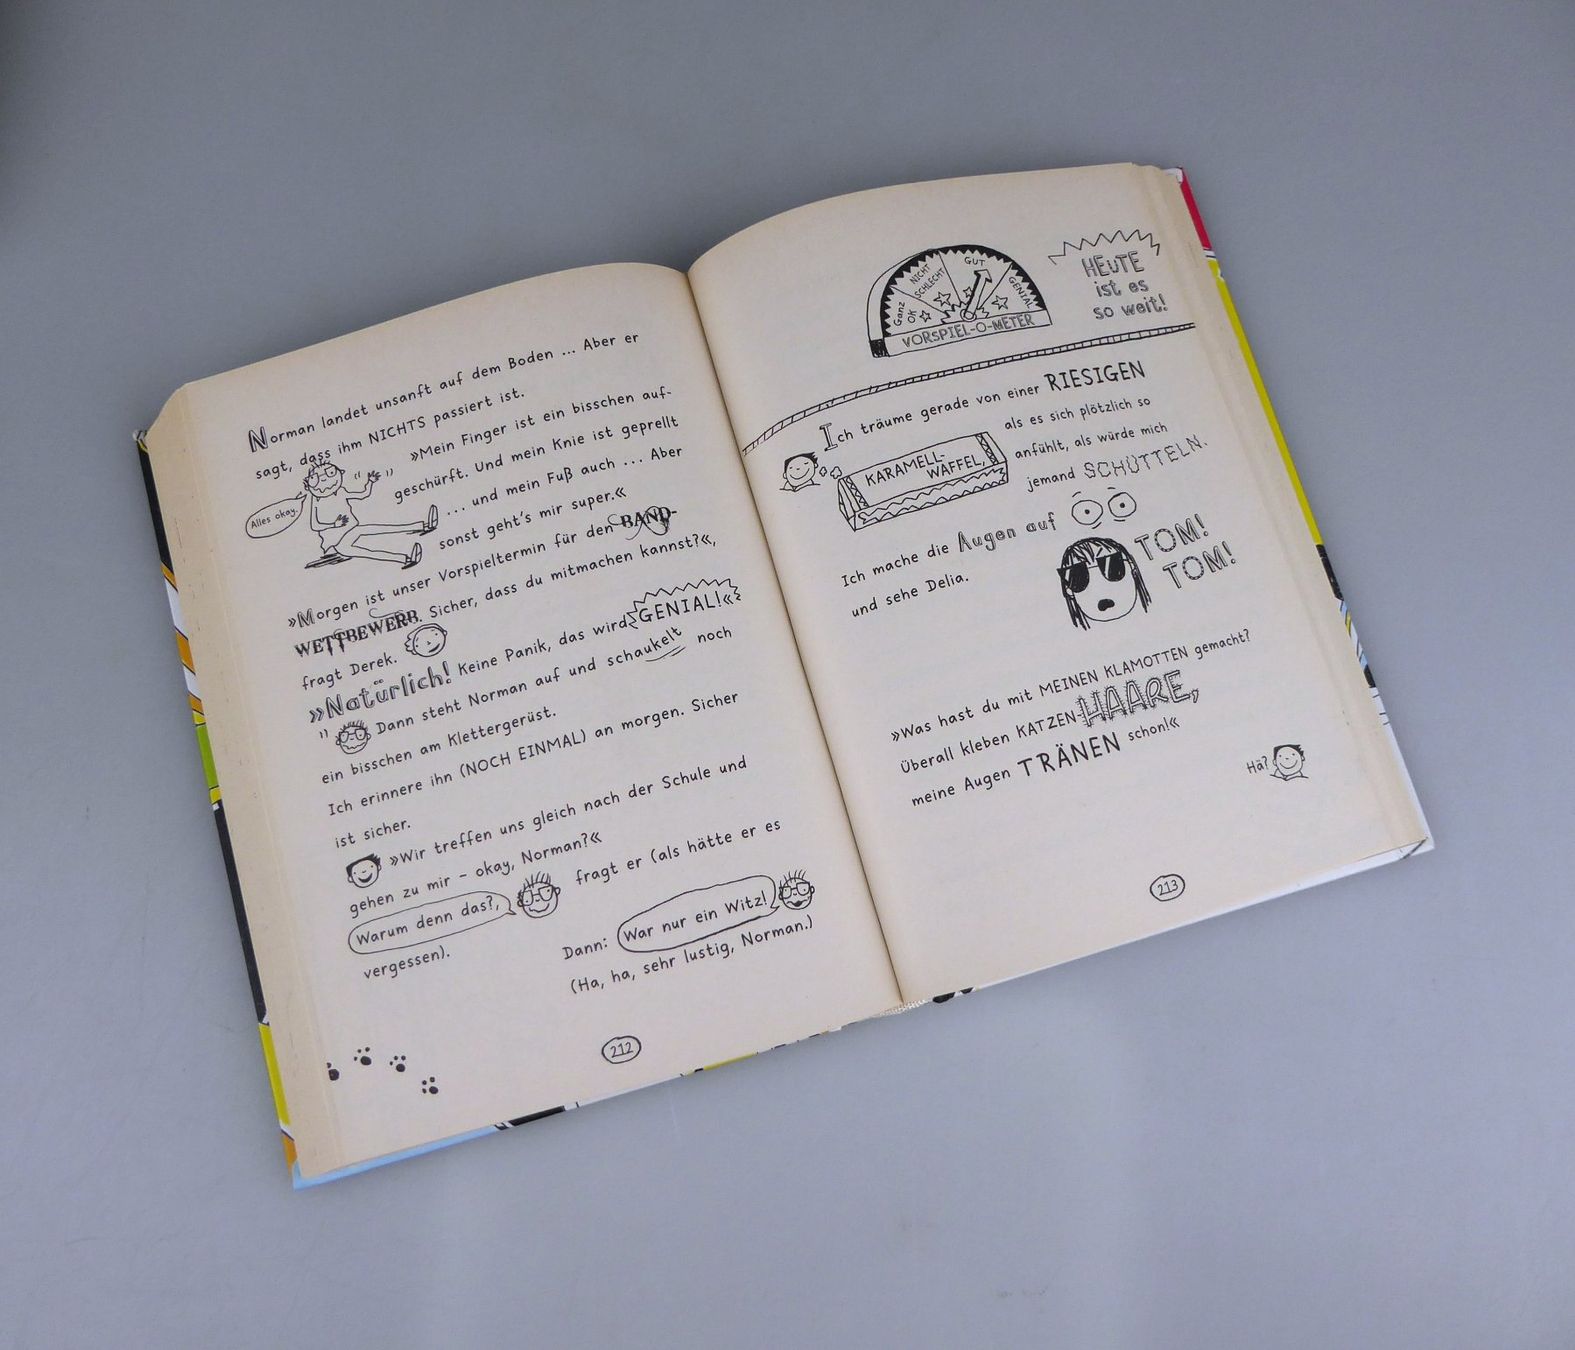 Norman landet unsanft auf dem Boden ... Aber er
sagt, dass ihm NICHTS passiert ist.
»Mein Finger ist ein bisschen auf-
geschürft. Und mein Knie ist geprellt
... und mein Fuß auch ... Aber
sonst geht's mir super.«
Alles okay.
»Morgen ist unser Vorspieltermin für den BAND-
WETTBEWERB. Sicher, dass du mitmachen kannst?«,
fragt Derek.
»Natürlich! Keine Panik, das wird GENIAL!«
Dann steht Norman auf und schaukelt noch
ein bisschen am Klettergerüst.
Ich erinnere ihn (NOCH EINMAL) an morgen. Sicher
ist sicher.
»Wir treffen uns gleich nach der Schule und
gehen zu mir – okay, Norman?«
Warum denn das?, fragt er (als hätte er es
vergessen).
Dann: War nur ein Witz!
(Ha, ha, sehr lustig, Norman.)
212
Ganz OK
NICHT SCHLECHT
GUT
GENIAL
VORSPIEL-O-METER
HEUTE
ist es
so weit!
Ich träume gerade von einer RIESIGEN
KARAMELL-
WAFFEL,
als es sich plötzlich so
anfühlt, als würde mich
jemand SCHÜTTELN.
Ich mache die Augen auf
und sehe Delia.
TOM!
TOM!
»Was hast du mit MEINEN KLAMOTTEN gemacht?
Überall kleben KATZEN-HAARE,
meine Augen TRÄNEN schon!«
Hä?
213